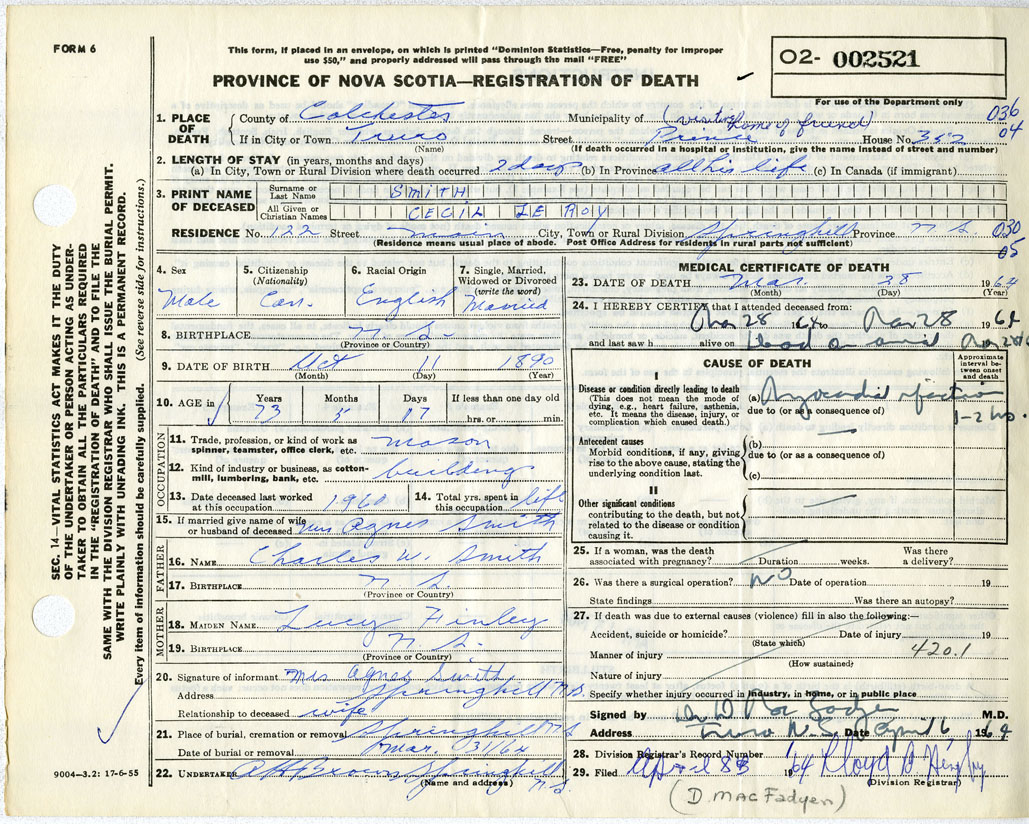 FORM 6
This form, if placed in an envelope, on which is printed "Dominion Statistics—Free, penalty for improper
use $50," and properly addressed will pass through the mail "FREE"
PROVINCE OF NOVA SCOTIA—REGISTRATION OF DEATH
O2- 002521
For use of the Department only
036
04
1. PLACE OF DEATH
County of Colchester Municipality of (visiting home of friend)
If in City or Town Truro Street Prince House No. 362
(Name) (If death occurred in a hospital or institution, give the name instead of street and number)
2. LENGTH OF STAY (in years, months and days)
(a) In City, Town or Rural Division where death occurred 2 days (b) In Province all his life (c) In Canada (if immigrant)
3. PRINT NAME OF DECEASED
Surname or Last Name SMITH
All Given or Christian Names CECIL LE ROY
RESIDENCE No. 122 Street Main City, Town or Rural Division Springhill Province N S
(Residence means usual place of abode. Post Office Address for residents in rural parts not sufficient)
030
05
4. Sex Male
5. Citizenship (Nationality) Can.
6. Racial Origin English
7. Single, Married, Widowed or Divorced (write the word) Married
8. BIRTHPLACE N. S.
(Province or Country)
9. DATE OF BIRTH Oct 11 1890
(Month) (Day) (Year)
10. AGE in Years Months Days If less than one day old
73 5 17 hrs. or min.
OCCUPATION
11. Trade, profession, or kind of work as spinner, teamster, office clerk, etc. Mason
12. Kind of industry or business, as cotton-mill, lumbering, bank, etc. building
13. Date deceased last worked at this occupation 1960
14. Total yrs. spent in this occupation life
15. If married give name of wife or husband of deceased Mrs Agnes Smith
FATHER
16. NAME Charles W. Smith
17. BIRTHPLACE N S.
(Province or Country)
MOTHER
18. MAIDEN NAME Lucy Finley
19. BIRTHPLACE N S.
(Province or Country)
20. Signature of informant Mrs Agnes Smith
Address Springhill N.S.
Relationship to deceased wife
21. Place of burial, cremation or removal Springhill N S
Date of burial or removal Mar. 31/64
22. UNDERTAKER Brown Springhill N.S.
(Name and address)
MEDICAL CERTIFICATE OF DEATH
23. DATE OF DEATH Mar. 28 1964
(Month) (Day) (Year)
24. I HEREBY CERTIFY that I attended deceased from:
Mar 28 1964 to Mar 28 1964
and last saw h alive on Dead on arrival Mar 28/6
CAUSE OF DEATH
Approximate interval between onset and death
I
Disease or condition directly leading to death
(This does not mean the mode of dying, e.g., heart failure, asthenia, etc. It means the disease, injury, or complication which caused death.)
(a) Myocardial infarction 1-2 hrs.
due to (or as a consequence of)
Antecedent causes
Morbid conditions, if any, giving rise to the above cause, stating the underlying condition last.
(b)
due to (or as a consequence of)
(c)
II
Other significant conditions
contributing to the death, but not related to the disease or condition causing it.
25. If a woman, was the death associated with pregnancy? Duration weeks. Was there a delivery?
26. Was there a surgical operation? NO Date of operation 19
State findings Was there an autopsy?
27. If death was due to external causes (violence) fill in also the following:—
Accident, suicide or homicide? Date of injury 19
(State which)
Manner of injury 420.1
(How sustained)
Nature of injury
Specify whether injury occurred in industry, in home, or in public place
Signed by Dr D MacFadyen M.D.
Address Truro N.S. Date April 6, 1964
28. Division Registrar's Record Number 83
29. Filed April 8 1964 Lloyd
(Division Registrar)
(D. MacFadyen)
SEC. 14—VITAL STATISTICS ACT MAKES IT THE DUTY
OF THE UNDERTAKER OR PERSON ACTING AS UNDER-
TAKER TO OBTAIN ALL THE PARTICULARS REQUIRED
IN THE "REGISTRATION OF DEATH" AND TO FILE THE
SAME WITH THE DIVISION REGISTRAR WHO SHALL ISSUE THE BURIAL PERMIT.
WRITE PLAINLY WITH UNFADING INK. THIS IS A PERMANENT RECORD.
Every item of information should be carefully supplied. (See reverse side for instructions.)
9004—3.2: 17-6-55